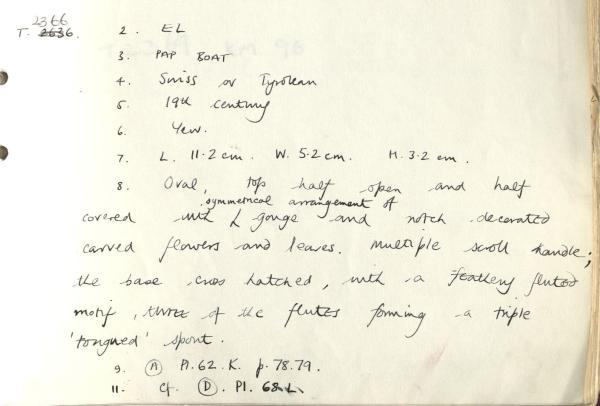 2366
T. 2636.
2. EL
3. PAP BOAT
4. Swiss or Tyrolean
5. 19th century
6. Yew.
7. L. 11.2 cm. W. 5.2 cm. H. 3.2 cm.
8. Oval, top half open and half
symmetrical arrangement of
covered with gouge and notch decorated
carved flowers and leaves. Multiple scroll handle;
the base cross hatched, with a feathery fluted
motif, three of the flutes forming a triple
'tongued' spout.
9. (A) Pl. 62. K. p. 78.79.
11. Cf. (D). Pl. 68 L.